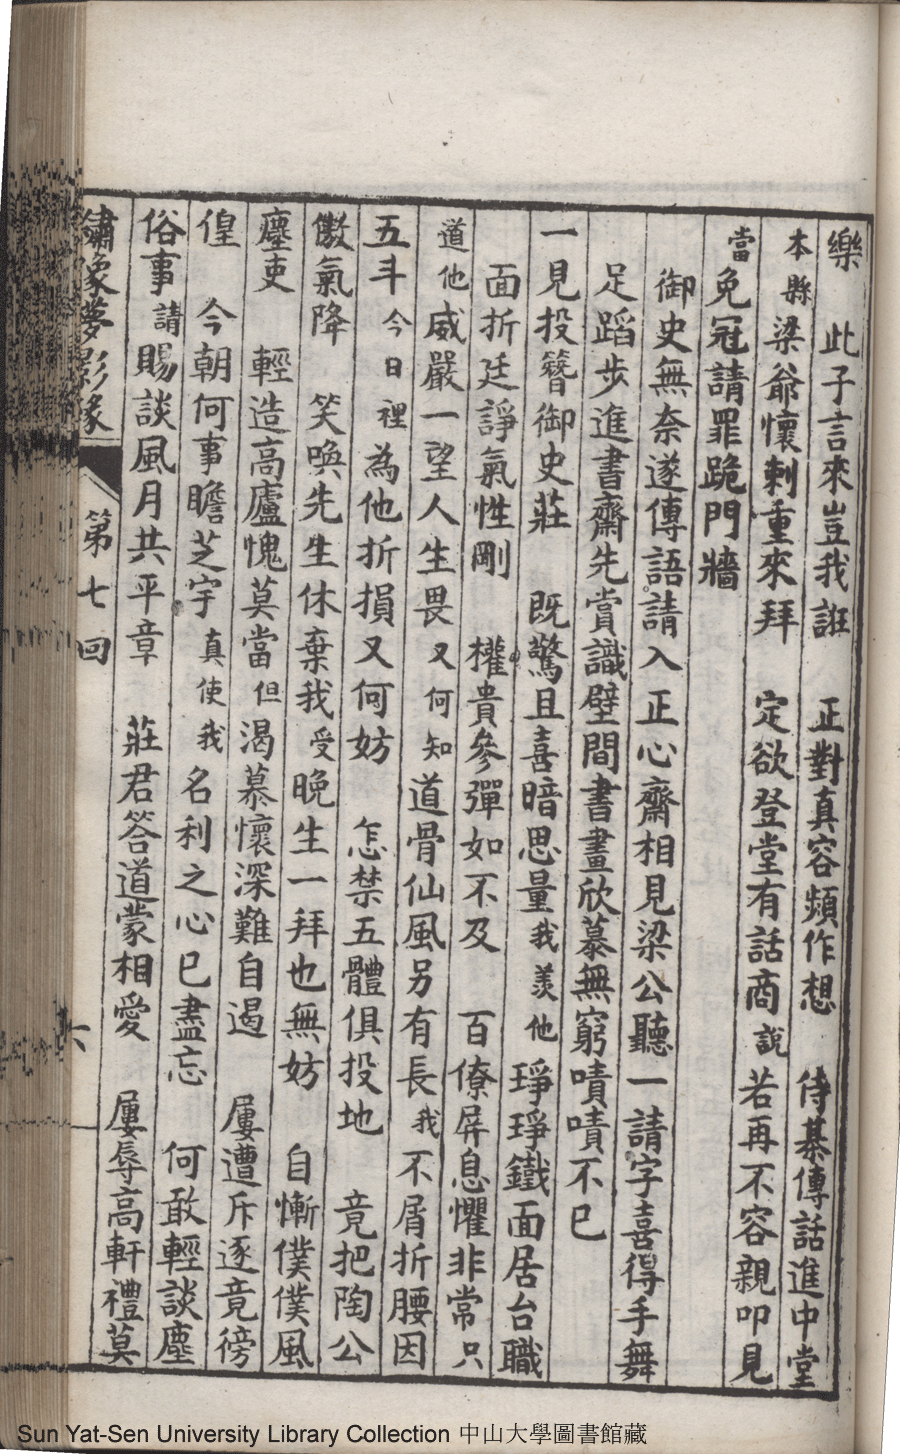 樂　此子言來豈我誑　正對真容頻作想　待棊傳話進中堂
本縣梁爺懷刺重來拜　定欲登堂有話商說若再不容親叩見
當免冠請罪跪門牆
御史無奈遂傳語請入正心齋相見梁公聽一請字喜得手舞
足蹈步進書齋先賞識壁間書畫欣慕無窮嘖嘖不已
一見投簪御史莊　既驚且喜暗思量我羨他　琤琤鐵面居台職
面折廷諍氣性剛　權貴參彈如不及　百僚屏息懼非常只
道他威嚴一望人生畏又何知道骨仙風另有長我不屑折腰因
五斗今日裡為他折損又何妨　怎禁五體俱投地　竟把陶公
傲氣降　笑喚先生休棄我受晚生一拜也無妨　自慚僕僕風
塵吏　輕造高廬愧莫當但渴慕懷深難自遏　屢遭斥逐竟徬
徨　今朝何事瞻芝宇真使我名利之心已盡忘　何敢輕談塵
俗事請賜談風月共平章　莊君答道蒙相愛　屢辱高軒禮莫
繡像夢影緣　第七回　六
Sun Yat-Sen University Library Collection 中山大學圖書館藏